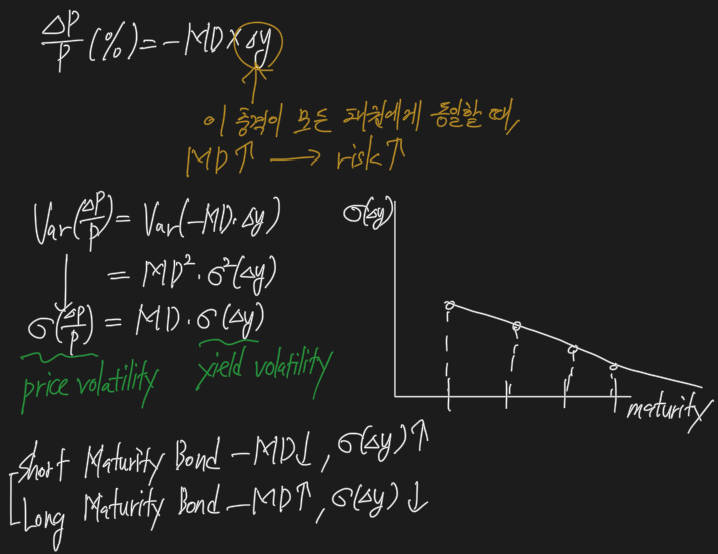 ΔP/P (%) = -MD × Δy
이 충격이 모든 채권에게 동일할 때,
MD↑ → risk↑
Var(ΔP/P) = Var(-MD·Δy)
= MD²·σ²(Δy)
σ(ΔP/P) = MD·σ(Δy)
price volatility
yield volatility
σ(Δy)
maturity
Short Maturity Bond - MD↓, σ(Δy)↑
Long Maturity Bond - MD↑, σ(Δy)↓